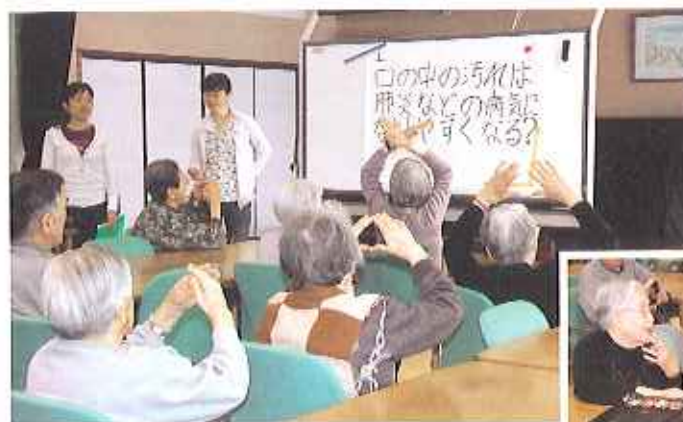 口の中の汚れは
肺炎などの病気に
やすくなる?